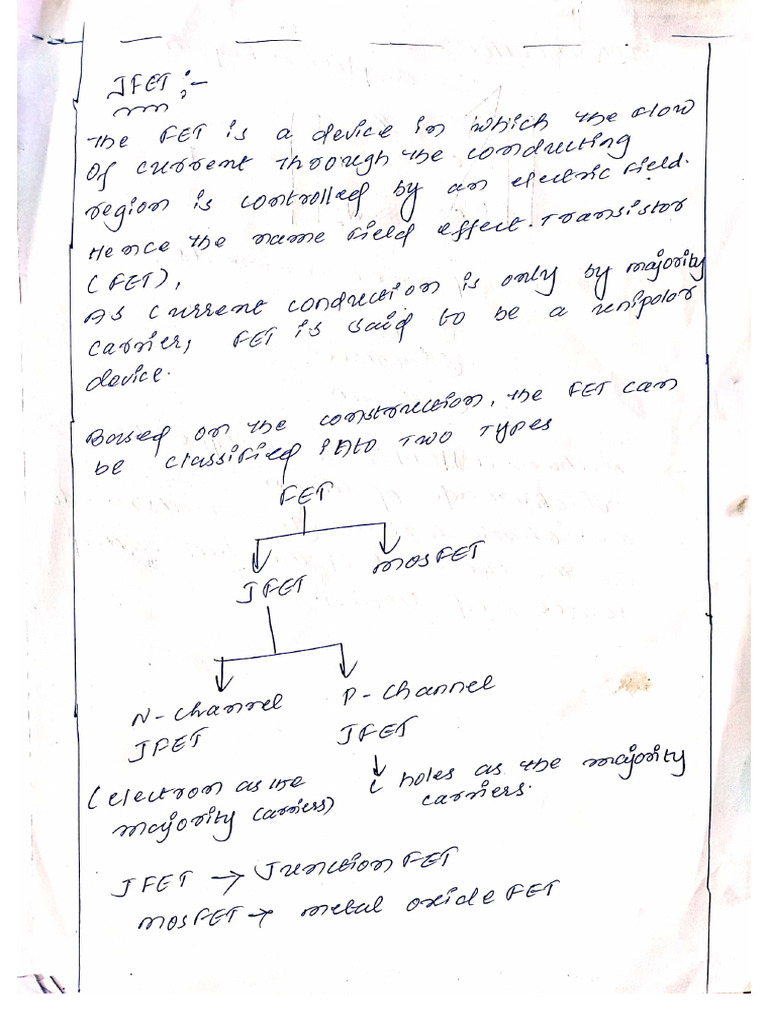 JFET :-
The FET is a device in which the flow
of current through the conducting
region is controlled by an electric field.
Hence the name field effect. Transistor
(FET),
As current conduction is only by majority
carrier, FET is said to be a unipolor
device.
Based on the construction, the FET can
be classified into two types
FET
JFET
MOSFET
N-channel
JFET
P-channel
JFET
(electron as the
majority carriers)
( holes as the majority
carriers.
JFET → Junction FET
MOSFET → metal oxide FET